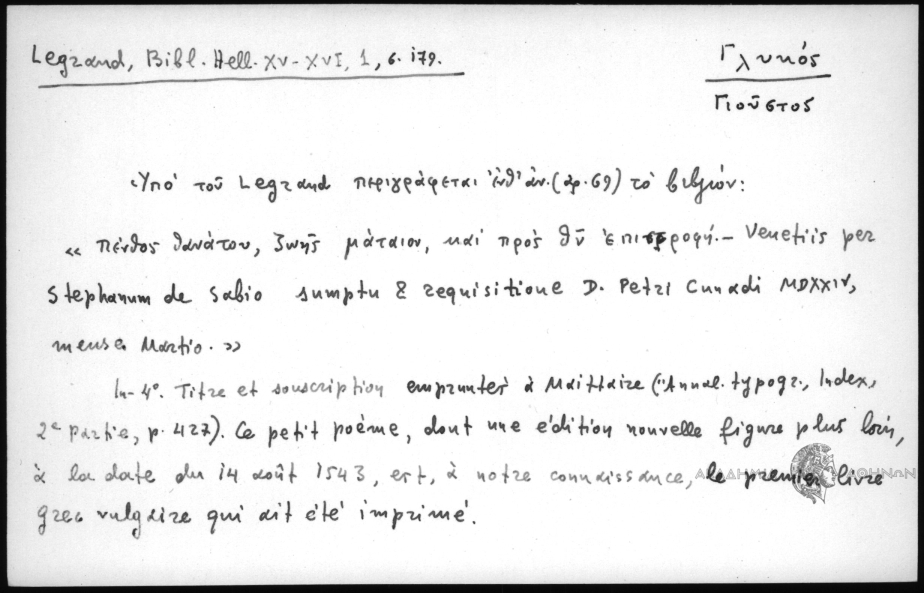 Legrand, Bibl. Hell. XV-XVI, 1, σ. 179.
Γλυκός
Γιοῦστος
Ὑπό τοῦ Legrand περιγράφεται ἐνθ' ἀν. (ἀρ. 69) τό βιβλίον:
« Πένθος θανάτου, ζωῆς μάταιον, καί πρός θῦ ἐπιστροφή. – Venetiis per
Stephanum de Sabio sumptu & requisitione D. Petri Cunadi MDXXIV,
mense Martio. »
In-4º. Titre et souscription empruntés à Maittaire (Annal. typogr., Index,
2e partie, p. 427). Ce petit poème, dont une édition nouvelle figure plus loin,
à la date du 14 août 1543, est, à notre connaissance, le premier livre
grec vulgaire qui ait été imprimé.
ΑΚΑΔΗΜΙΑ ΑΘΗΝΩΝ